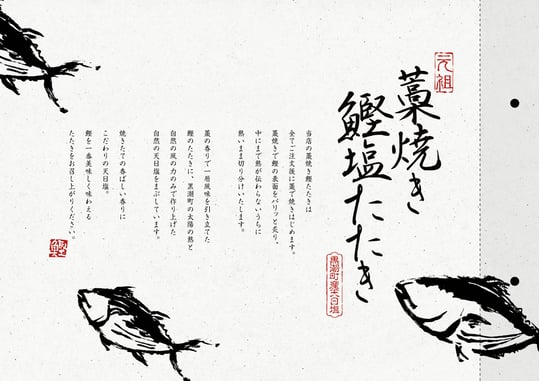 元祖
藁焼き
鰹塩たたき
黒潮町産天日塩
当店の藁焼き鰹たたきは
全てご注文後に藁で焼きはじめます。
藁焼きで鰹の表面をパリッと炙り、
中にまで熱が伝わらないうちに
熱いまま切り分けいたします。
藁の香りで一層風味を引き立てた
鰹のたたきに、黒潮町の太陽の熱と
自然の風の力のみで作り上げた
自然の天日塩をまぶしています。
焼きたての香ばしい香りに
こだわりの天日塩。
鰹を一番美味しく味わえる
たたきをお召し上がりください。